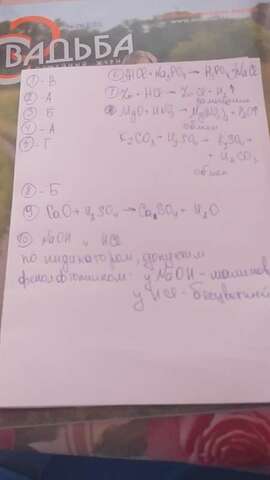 СВАДЬБА
① - В
② - А
③ - Б
④ - А
⑤ - Г
⑥ HCl + Na₃PO₄ → H₃PO₄ + NaCl
⑦ Zn + HCl → ZnCl + H₂↑
замещения
MgO + HNO₃ → Mg(NO₃)₂ + H₂O
обмен
K₂CO₃ + H₂SO₄ → K₂SO₄ +
+ H₂CO₃
обмен
⑧ - Б
⑨ CaO + H₂SO₄ → CaSO₄ + H₂O
⑩ NaOH и HCl
по индикатором, допустим
фенолфталеином: у NaOH - малинов
у HCl - бесцветный